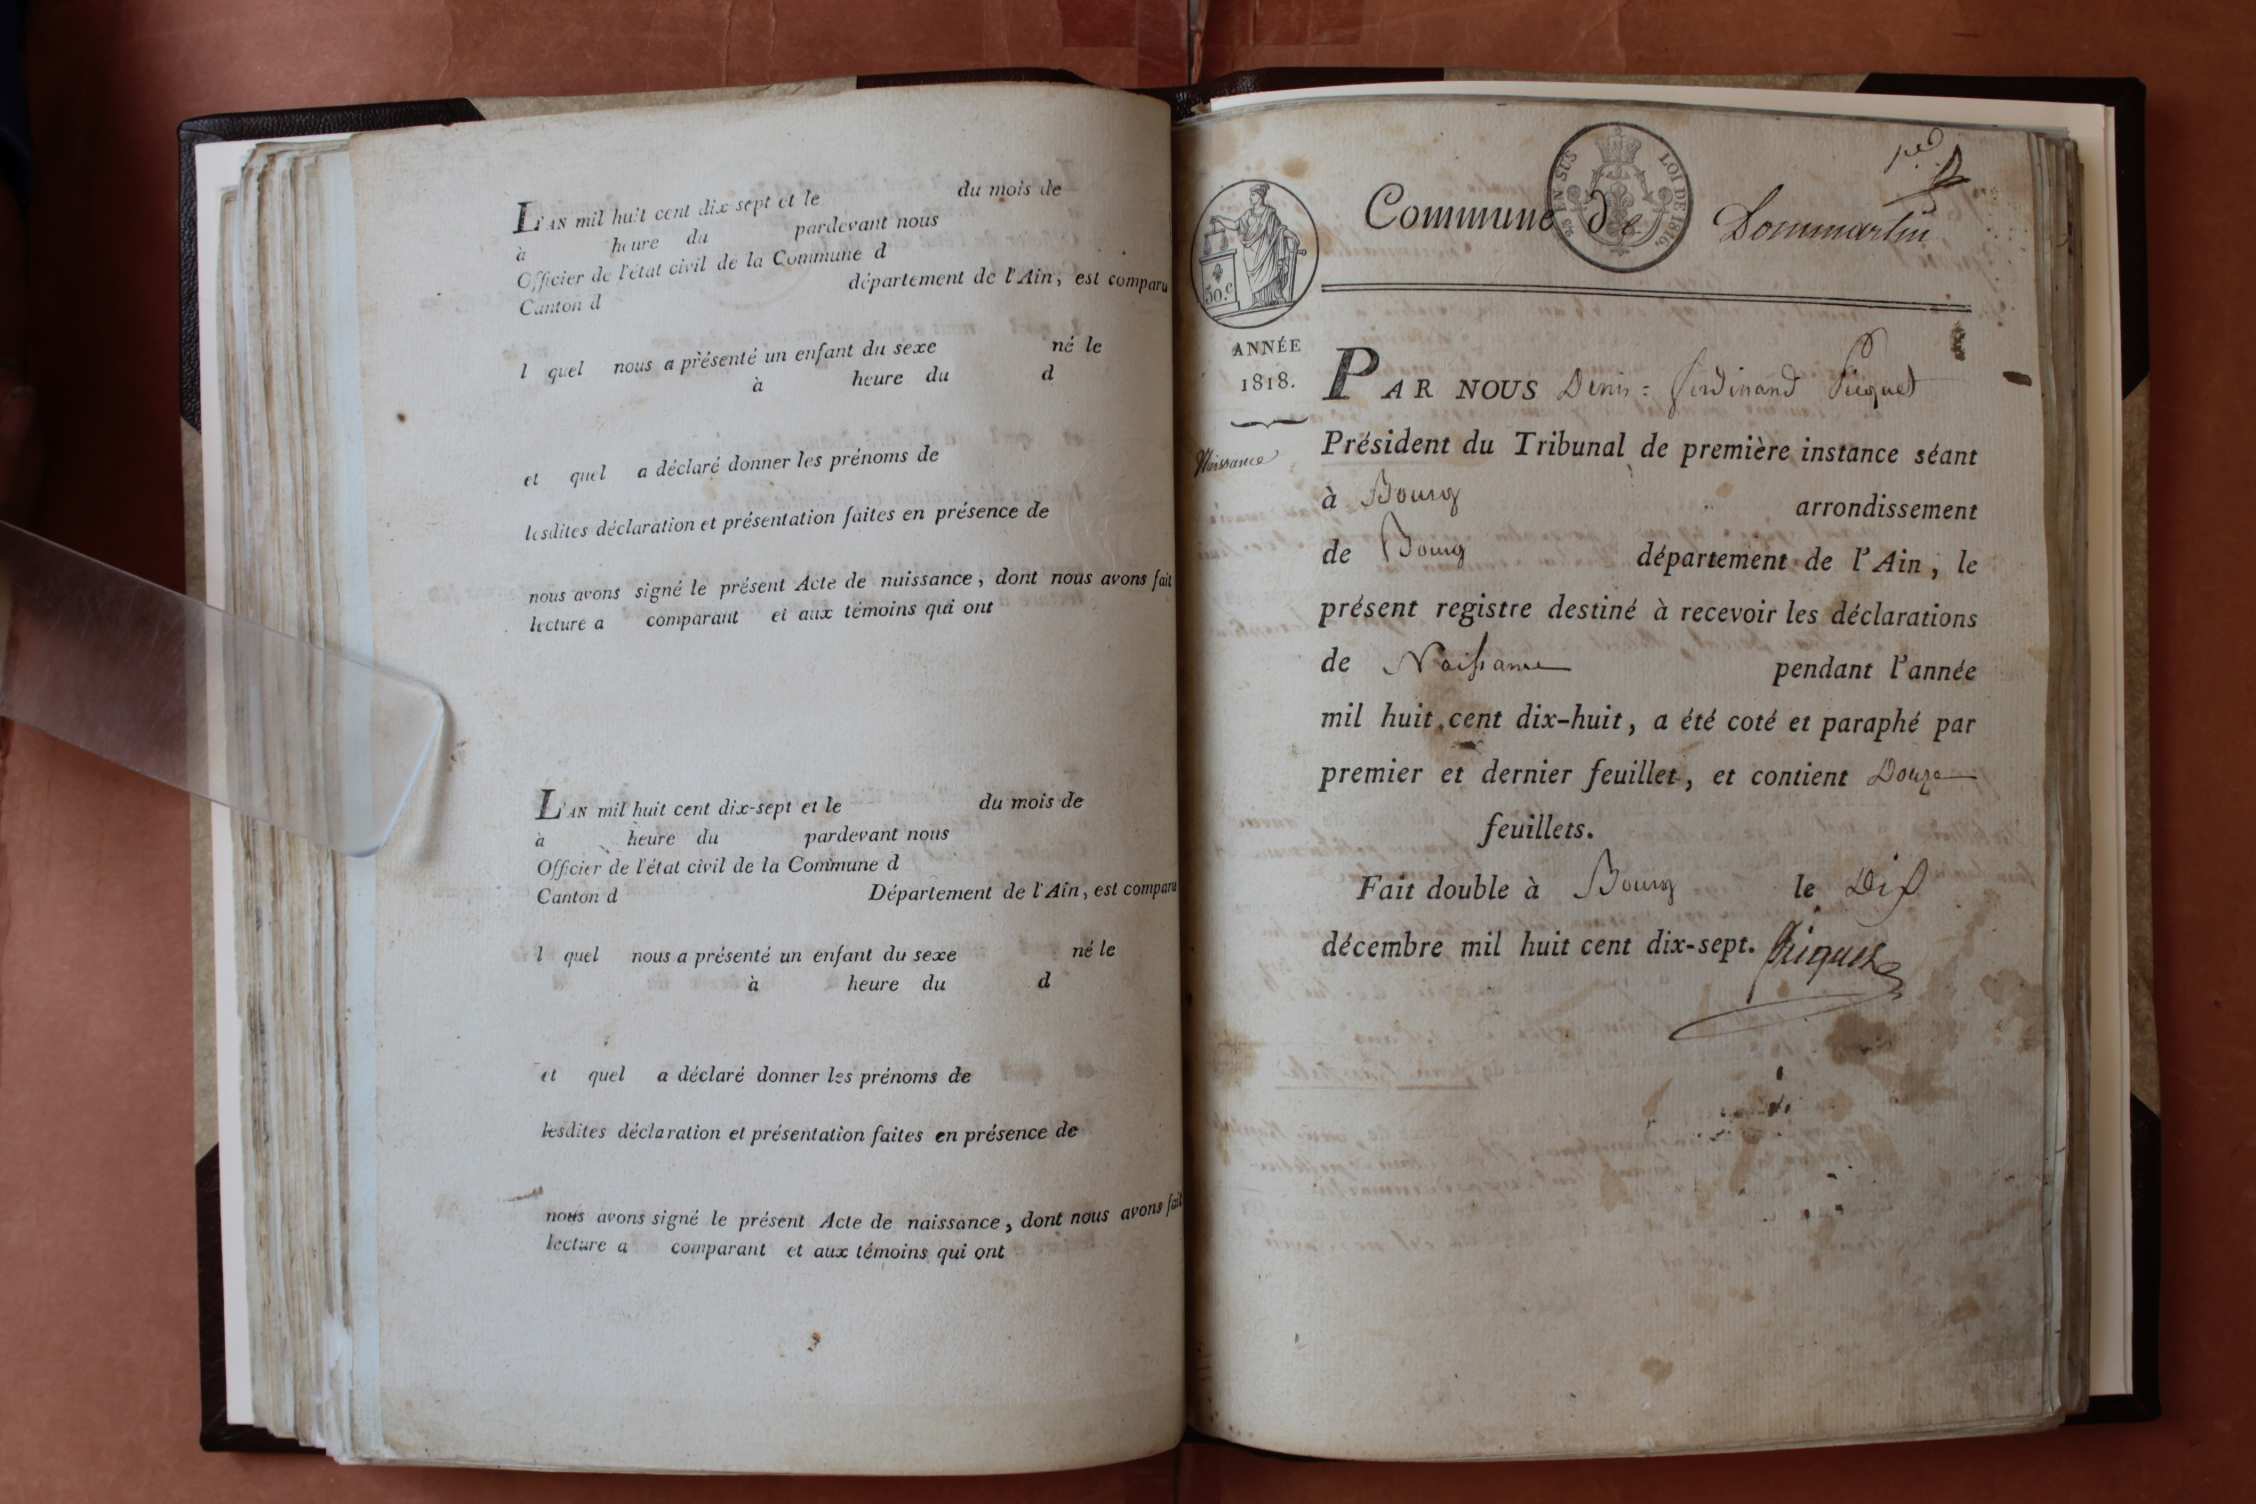 L'AN mil huit cent dix-sept et le du mois de
à heure du pardevant nous
Officier de l'état civil de la Commune d
Canton d département de l'Ain, est comparu
l quel nous a présenté un enfant du sexe né le
à heure du d
et quel a déclaré donner les prénoms de
lesdites déclaration et présentation faites en présence de
nous avons signé le présent Acte de naissance, dont nous avons fait
lecture a comparant et aux témoins qui ont
L'AN mil huit cent dix-sept et le du mois de
à heure du pardevant nous
Officier de l'état civil de la Commune d
Canton d Département de l'Ain, est comparu
l quel nous a présenté un enfant du sexe né le
à heure du d
et quel a déclaré donner les prénoms de
lesdites déclaration et présentation faites en présence de
nous avons signé le présent Acte de naissance, dont nous avons fait
lecture a comparant et aux témoins qui ont
LOI DE 1816.
Commune de Dommartin
50.c
ANNÉE
1818.
Naissance
PAR NOUS Denis-Ferdinand Picquet
Président du Tribunal de première instance séant
à Bourg arrondissement
de Bourg département de l'Ain, le
présent registre destiné à recevoir les déclarations
de Naissance pendant l'année
mil huit cent dix-huit, a été coté et paraphé par
premier et dernier feuillet, et contient Douze
feuillets.
Fait double à Bourg le Dix
décembre mil huit cent dix-sept. Picquet